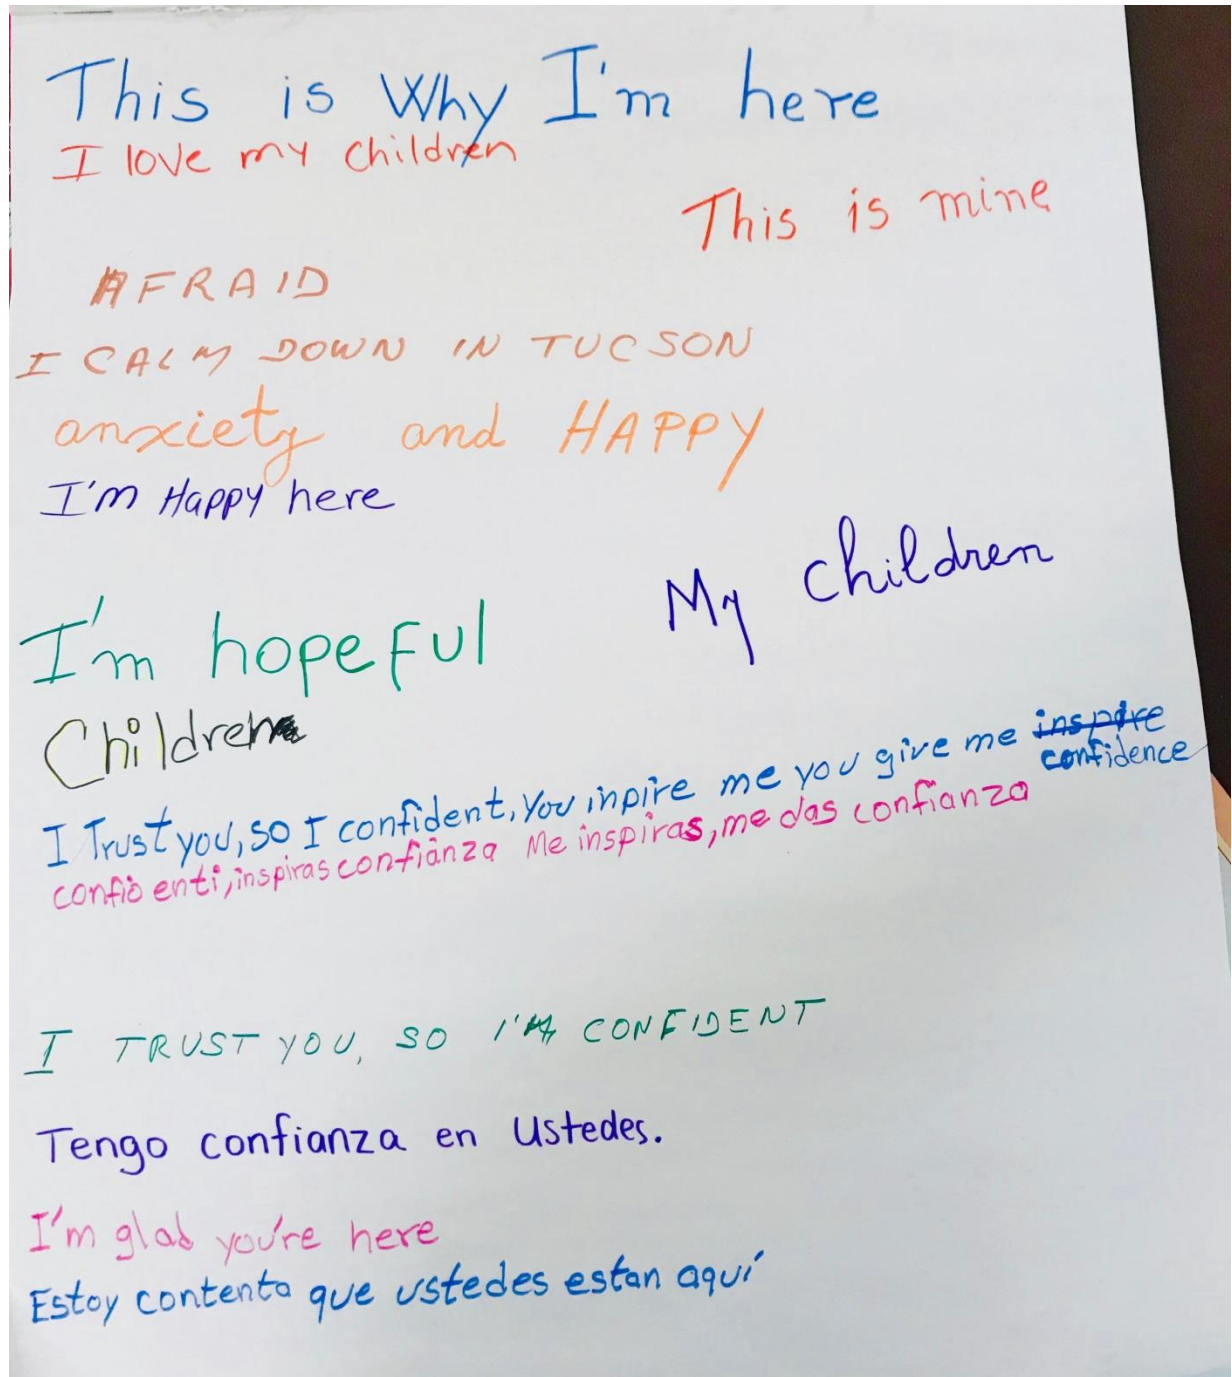 This is Why I'm here
I love my children
This is mine
AFRAID
I CALM DOWN IN TUCSON
anxiety and HAPPY
I'm Happy here
My children
I'm hopeful
Children
I Trust you, so I confident, You inpire me you give me inspire
confidence
confio enti, inspiras confianza Me inspiras, me das confianza
I TRUST YOU, SO I'M CONFIDENT
Tengo confianza en Ustedes.
I'm glad you're here
Estoy contenta que ustedes estan aquí